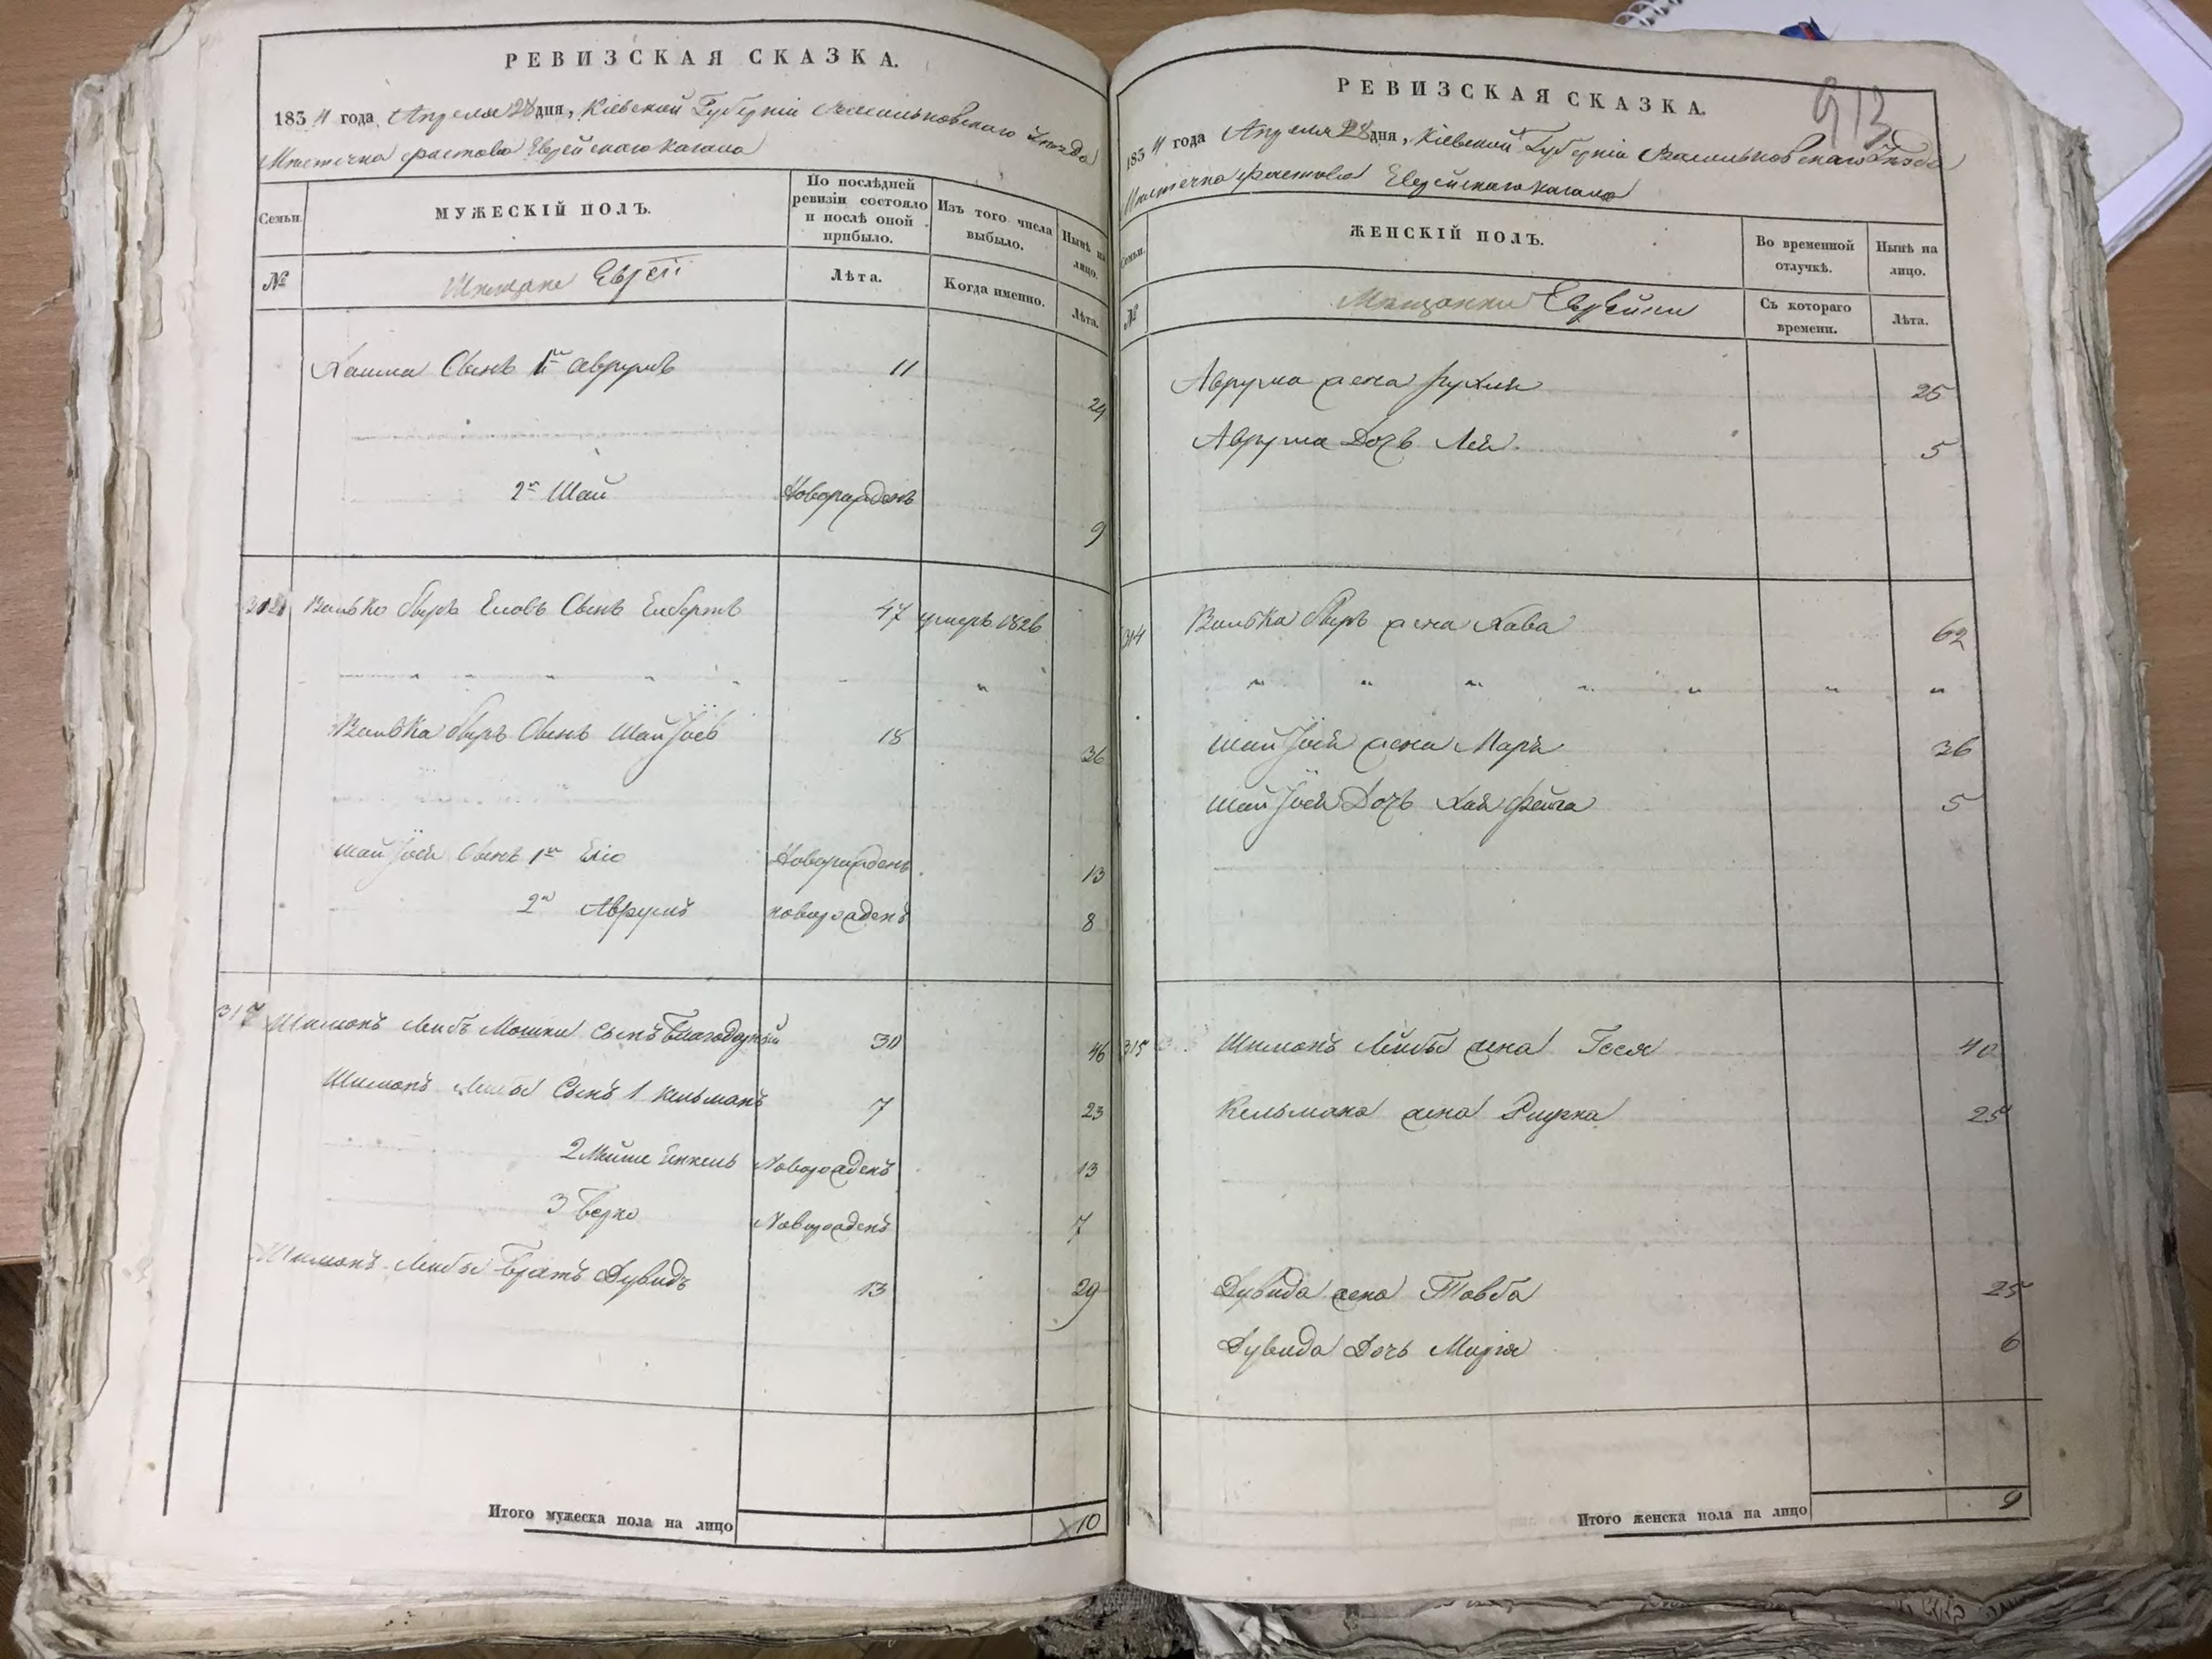 РЕВИЗСКАЯ СКАЗКА.
183 4 года Апреля 28 дня, Кіевской Губерніи Васильковскаго Уезда
Местечка Фастова Еврейскаго Кагала
Семьи.
МУЖЕСКІЙ ПОЛЪ.
По послѣдней ревизіи состояло и послѣ оной прибыло.
Изъ того числа выбыло.
Нынѣ на лицо.
№
Мещане Евреи
Лѣта.
Когда именно.
Лѣта.
Сынъ 1й Аврумъ 11 24
2й Шай Новорожденъ 9
Волько Беръ Сынъ 47 умеръ 1826
Волька Беръ Сынъ Шай Іосъ 18 36
Шай Іося Сынъ 1й Еліо Новорожденъ 13
2й Аврумъ новорожденъ 8
317 Шимонъ Лейбъ Мошки сынъ Благодарный 30 46
Шимонъ Лейбы Сынъ 1 Кельманъ 7 23
2 Мойше Енкель Новорожденъ 13
3 Берко Новорожденъ 7
Шимонъ Лейбы Братъ Дувидъ 13 29
Итого мужеска пола на лицо 10
913
РЕВИЗСКАЯ СКАЗКА.
183 4 года Апреля 28 дня, Кіевской Губерніи Васильковскаго Уезда
Местечка Фастова Еврейскаго Кагала
Семьи.
ЖЕНСКІЙ ПОЛЪ.
Во временной отлучкѣ.
Нынѣ на лицо.
№
Мещанки Еврейки
Съ котораго времени.
Лѣта.
Аврума жена Рухля 25
Аврума Дочь Лея 5
314 Волька Беръ жена Хава 62
Шай Іося жена Маря 36
Шай Іося Дочь Хая Фейга 5
315 Шимонъ Лейбы жена Гося 40
Кельмана жена 25
Дувида жена Товба 25
Дувида Дочь Марія 6
Итого женска пола на лицо 9